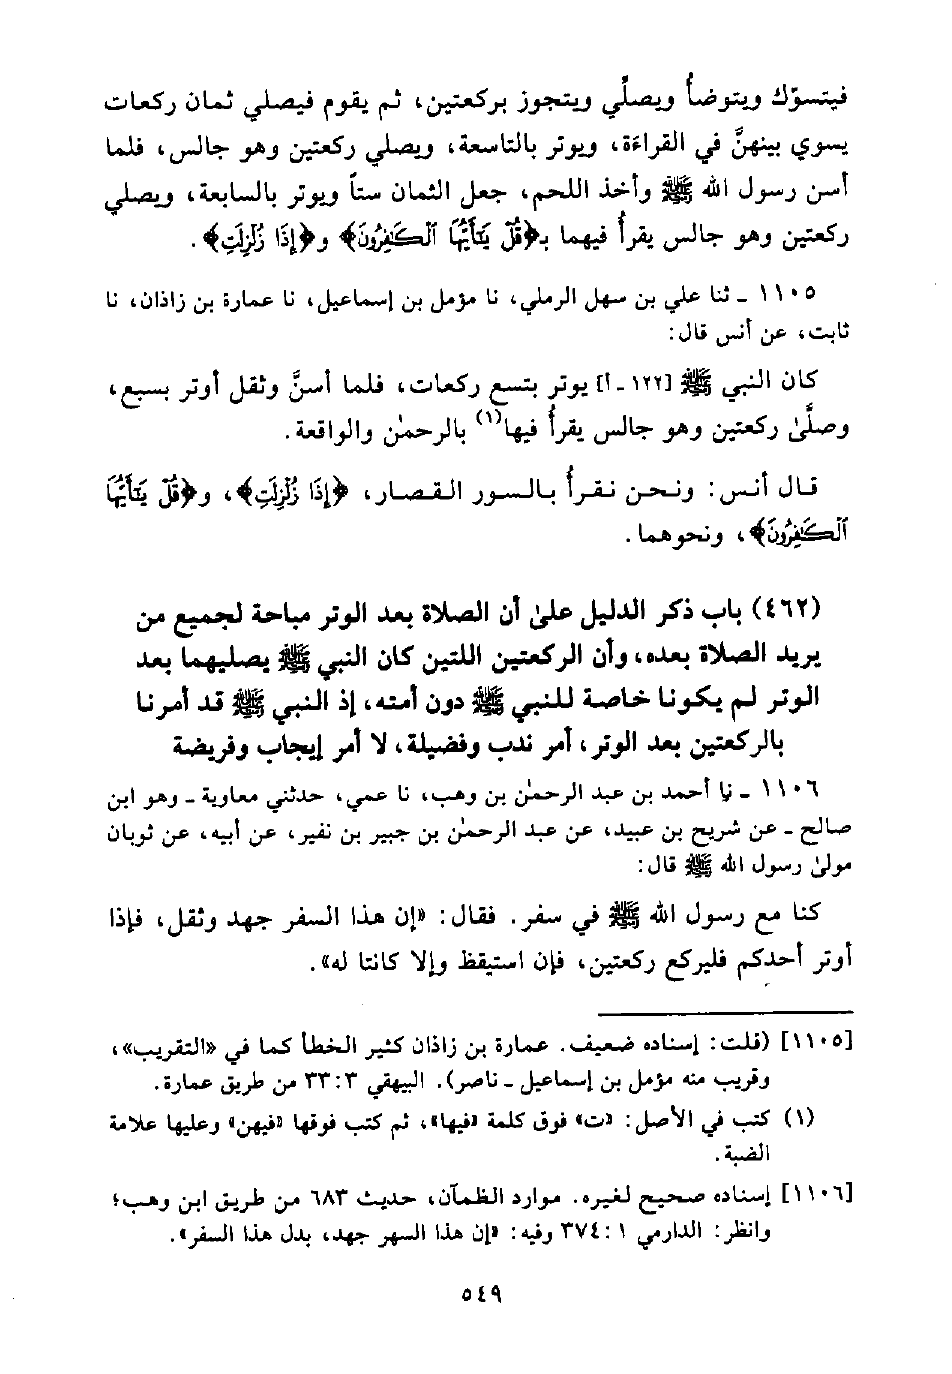 فيتسوّك ويتوضأُ ويصلِّي ويتجوز بركعتين، ثم يقوم فيصلي ثمان ركعات
يسوي بينهنَّ في القراءة، ويوتر بالتاسعة، ويصلي ركعتين وهو جالس، فلما
أسن رسول الله ﷺ وأخذ اللحم، جعل الثمان ستاً ويوتر بالسابعة، ويصلي
ركعتين وهو جالس يقرأُ فيهما بـ﴿قُلْ يَٰٓأَيُّهَا ٱلْكَٰفِرُونَ﴾ و﴿إِذَا زُلْزِلَتِ﴾.
١١٠٥ ـ ثنا علي بن سهل الرملي، نا مؤمل بن إسماعيل، نا عمارة بن زاذان، نا
ثابت، عن أنس قال:
كان النبي ﷺ [١٢٢ ـ أ] يوتر بتسع ركعات، فلما أسنَّ وثقل أوتر بسبع،
وصلَّىٰ ركعتين وهو جالس يقرأُ فيها(١) بالرحمٰن والواقعة.
قال أنس: ونحن نقرأُ بالسور القصار، ﴿إِذَا زُلْزِلَتِ﴾، و﴿قُلْ يَٰٓأَيُّهَا
ٱلْكَٰفِرُونَ﴾، ونحوهما.
(٤٦٢) باب ذكر الدليل علىٰ أن الصلاة بعد الوتر مباحة لجميع من
يريد الصلاة بعده، وأن الركعتين اللتين كان النبي ﷺ يصليهما بعد
الوتر لم يكونا خاصة للنبي ﷺ دون أمته، إذ النبي ﷺ قد أمرنا
بالركعتين بعد الوتر، أمر ندب وفضيلة، لا أمر إيجاب وفريضة
١١٠٦ ـ نا أحمد بن عبد الرحمٰن بن وهب، نا عمي، حدثني معاوية ـ وهو ابن
صالح ـ عن شريح بن عبيد، عن عبد الرحمٰن بن جبير بن نفير، عن أبيه، عن ثوبان
مولىٰ رسول الله ﷺ قال:
كنا مع رسول الله ﷺ في سفر. فقال: «إن هذا السفر جهد وثقل، فإذا
أوتر أحدكم فليركع ركعتين، فإن استيقظ وإلا كانتا له».
[١١٠٥] (قلت: إسناده ضعيف. عمارة بن زاذان كثير الخطأ كما في «التقريب»،
وقريب منه مؤمل بن إسماعيل ـ ناصر). البيهقي ٣: ٣٣ من طريق عمارة.
(١) كتب في الأصل: «ت» فوق كلمة «فيها»، ثم كتب فوقها «فيهن» وعليها علامة
الضبة.
[١١٠٦] إسناده صحيح لغيره. موارد الظمآن، حديث ٦٨٣ من طريق ابن وهب؛
وانظر: الدارمي ١: ٣٧٤ وفيه: «إن هذا السهر جهد، بدل هذا السفر».
٥٤٩